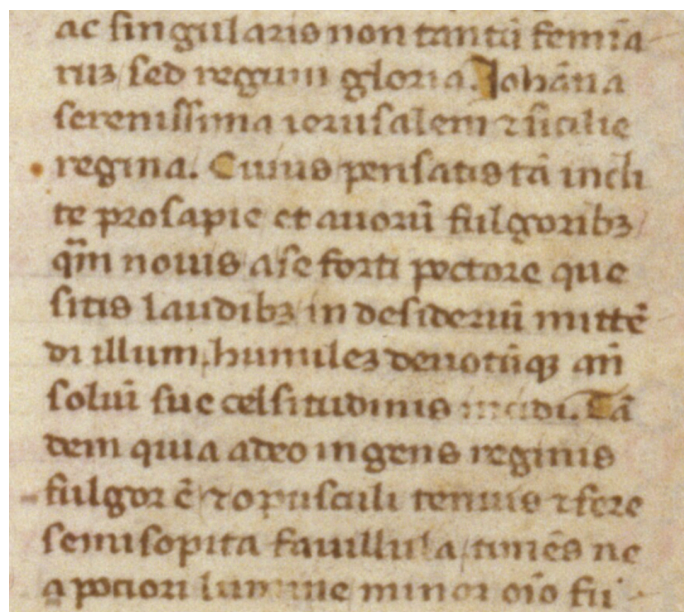 ac singularis non tantū femīa
ruꝫ sed regum gloria. Johāna
serenissima ierusalem ⁊ sicilie
regina. Cuius pensatis tā incli
te prosapie et auorū fulgoribꝫ
qm̄ nouis a se forti pectore que
sitis laudibꝫ in desideriū mittē
di illum humileꝫ deuotūqꝫ an̄
soliū sue celsitudinis incidi. Tā
dem quia adeo ingens reginis
fulgor ē ⁊ opusculi tenuis ⁊ fere
semisopita fauillula timēs ne
a potiori lumine minor oīo fu